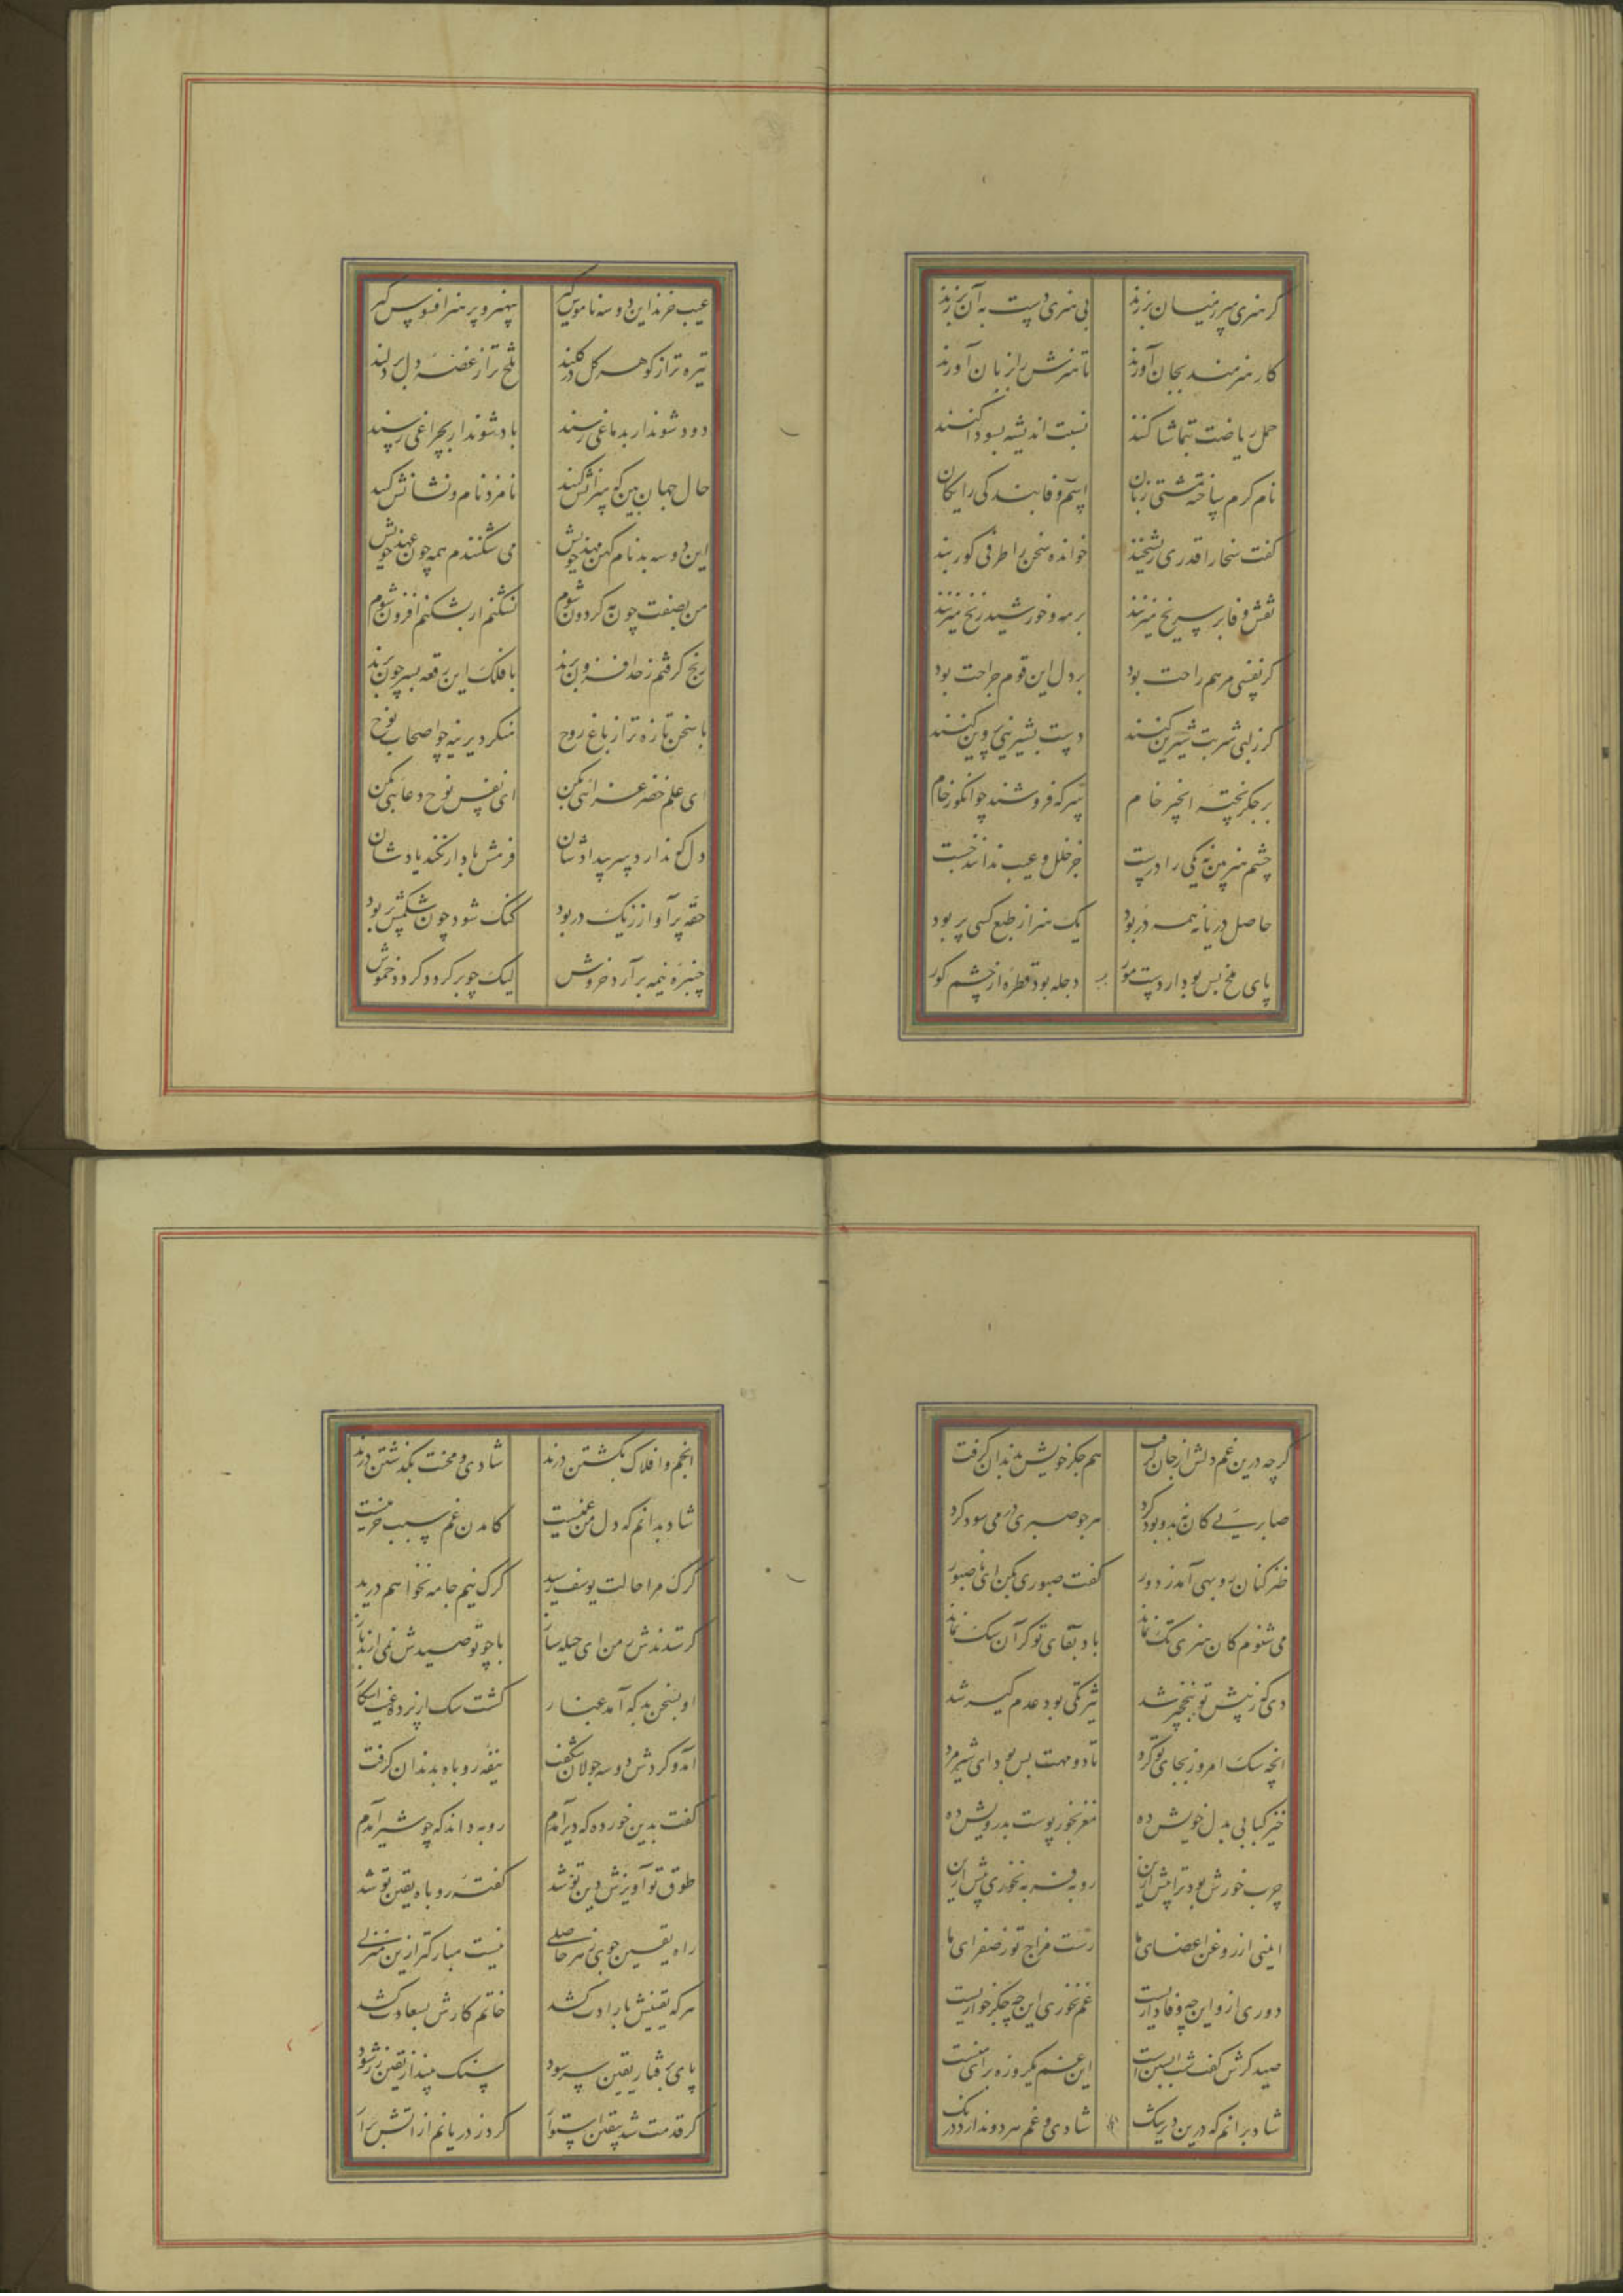 گر هنری سر ز میان برزند بی هنری دست به آن برزند
کار هنرمند بجان آورند تا هنرش را بزبان آورند
حمل ریاضت بتماشا کنند نسبت اندیشه بسودا کنند
نام کرم ساخته مشتی زیان اسم وفا بندگی رایگان
گفت سخا را قدری ریشخند خوانده سخن را طرفی کوربند
نقش وفا بر سر یخ میزنند بر مه و خورشید زنخ میزنند
گر نفسی مرهم راحت بود بر دل این قوم جراحت بود
گر ز لبی شربت شیرین کنند دست بشیرینی پروین کنند
بر جگر پخته انجیر خام سرکه فروشند چو انگور خام
چشم هنربین نه یکی را درست جز خلل و عیب ندانند جست
حاصل دریا نه همه در بود یک هنر از طبع کسی پر بود
پای ملخ بس بود از دست مور دجله بود قطره از چشم کور
عیب خرند این دو سه ناموس‌گیر بی‌هنر و بر هنر افسوس‌گیر
تیره‌تر از گوهر گل در گلند تلخ‌تر از غصه دل بر دلند
دود شوند ار بدماغی رسند باد شوند ار بچراغی رسند
حال جهان بین که سرانش کیند نامزد نام و نشانش کیند
این دو سه بدنام کهن مهد خویش می‌شکنندم همه چون عهد خویش
من بصفت چون مه گردون شوم نشکنم ار بشکنم افزون شوم
رنج گرفتم ز حد افزون برند با فلک این رقعه بسر چون برند
با سخن تازه‌تر از باغ روح منکر دیرینه چو اصحاب نوح
ای علم خضر غزائی بکن ای نفس نوح دعائی بکن
دل که ندارد سر بیدادشان فرمش باد ار نکند یادشان
حقه پر آواز ز یک در بود گنگ شود چون شکمش پر بود
چنبره نیمه برآرد خروش لیک چو پر گردد گردد خموش
گرچه درین غم دلش از جان گرفت هم جگر خویش بدندان گرفت
صابریی کان نه بدو بود کرد هر جو صبری درمی سود کرد
طنزکنان روبهی آمد ز دور گفت صبوری بکن ای ناصبور
می‌شنوم کان هنری تک نماند باد بقای تو گر آن سگ نماند
دی که ز پیش تو بنخجیر شد تیزتکی بود عدم‌گیر شد
آنچه سگ امروز بجای تو کرد تا دو مهت بس بود ای شیرمرد
خیز کبابی بدل خویش ده مغز بخور پوست بدرویش ده
چرب خورش بود ترا پیش ازین روبه فربه نخوری پیش ازین
ایمنی از روغن اعضای ما رست مزاج تو ز صفرای ما
دوری ازو این چه وفاداریست غم نخوری این چه جگرخواریست
صید گرش گفت شب آبستن است این غم یکروزه برای منست
شاد برانم که درین دیر تنگ شادی و غم هر دو ندارد درنگ
انجم و افلاک بگشتن درند شادی و محنت بگذشتن درند
شاد بدانم که دل من غمیست کامدن غم سبب خرمیست
گرگ مرا حالت یوسف رسید گرگ نیم جامه نخواهم درید
گر ستدندش ز من ای حیله‌ساز با چو تو صیدیش نمی‌ارند باز
او بسخن بد که آمد غبار گشت سگ از پرده غیب آشکار
آمد و گردش دو سه جولان گرفت نیفه روباه بدندان گرفت
گفت بدین خورده که دیر آمدم روبه داند که چو شیر آمدم
طوق تو آویزش دین تو شد گفته روباه یقین تو شد
راه یقین جوی ز هر حاصلی نیست مبارکتر ازین منزلی
هر که یقینش بارادت کشد خاتم کارش بسعادت کشد
پای برفتار یقین سر شود سنگ بپندار یقین زر شود
گر قدمت شد بیقین استوار گرد ز دریا نم از آتش برآر